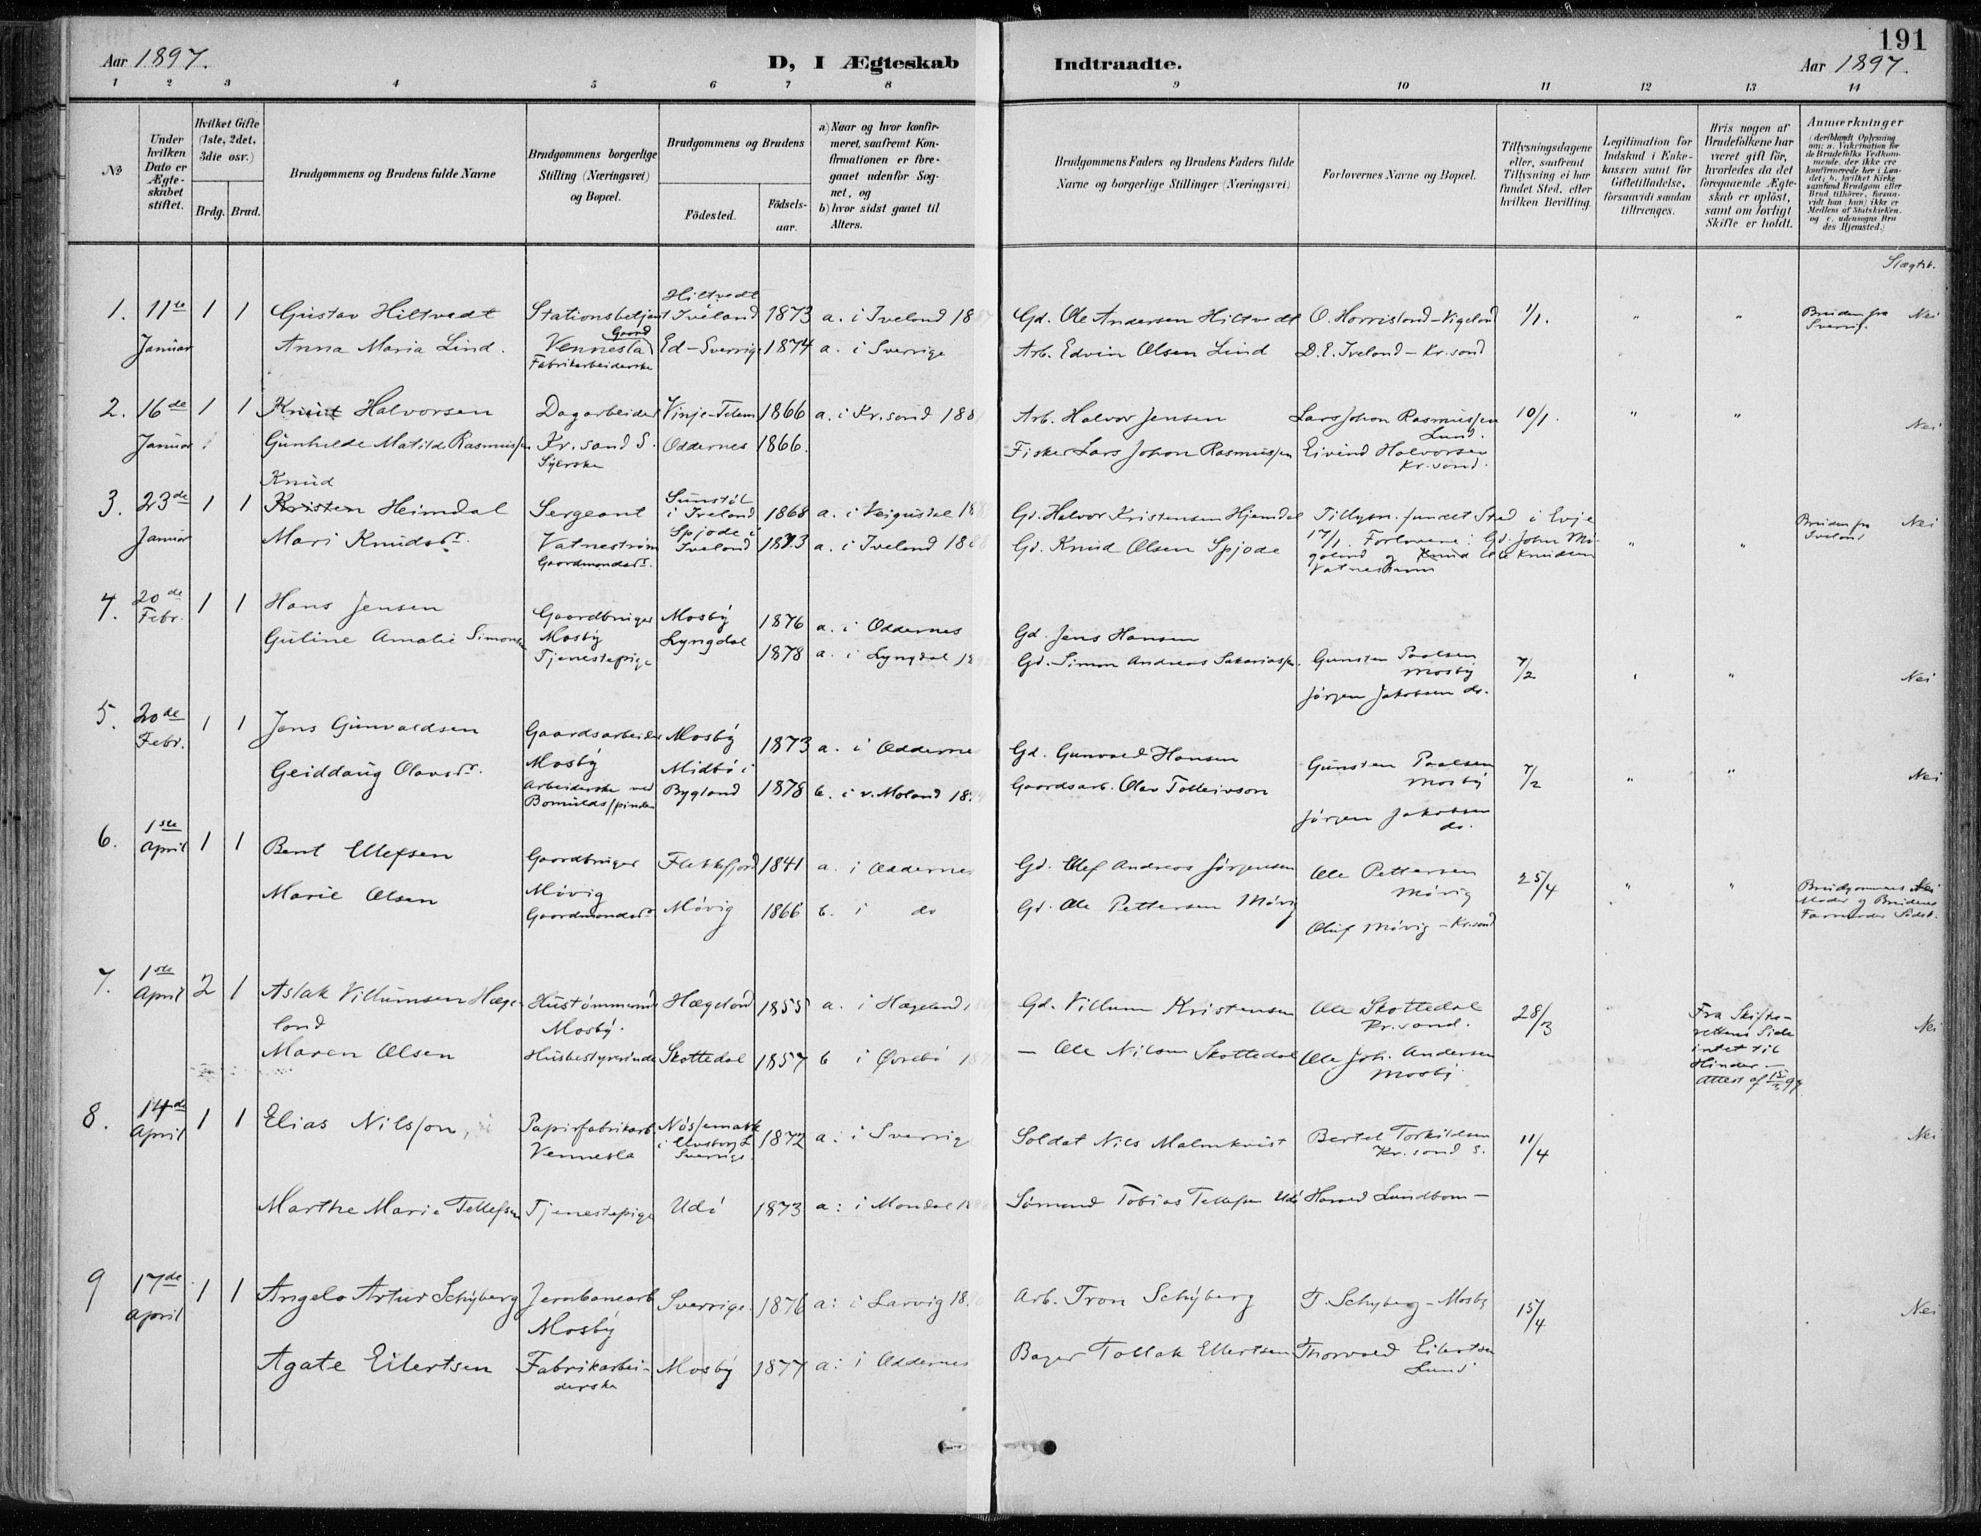 191
Aar 1897.
D, I Ægteskab
Indtraadte.
Aar 1897.
1 2 3 4 5 6 7 8 9 10 11 12 13 14
№
Under hvilken Dato er Ægteskabet stiftet.
Hvilket Gifte (1ste, 2det, 3die osv.)
Brdg. Brud.
Brudgommens og Brudens fulde Navne
Brudgommens borgerlige Stilling (Næringsvei) og Bopæl.
Brudgommens og Brudens
Fødested.
Fødselsaar.
a) Naar og hvor konfirmeret, saafremt Konfirmationen er foregaaet udenfor Sognet, og
b) hvor sidst gaaet til Alters.
Brudgommens Faders og Brudens Faders fulde Navne og borgerlige Stillinger (Næringsvei)
Forlovernes Navne og Bopæl.
Tillysningsdagene eller, saafremt Tillysning ei har fundet Sted, efter hvilken Bevilling.
Legitimation for Indskud i Enkekassen samt for Giftetilladelse, forsaavidt saadan tiltrænges.
Hvis nogen af Brudefolkene har været gift før, hvorledes da det foregaaende Ægteskab er opløst, samt om lovligt Skifte er holdt.
Anmærkninger (deriblandt Oplysning om: a. Vakcination for de Brudefolks Vedkommende, der ikke ere konfirmerede her i Landet; b. hvilket Kirkesamfund Brudgom eller Brud tilhører, forsaavidt han (hun) ikke er Medlem af Statskirken, og c. udensogns Brudes Hjemsted.)
Slægtsk.
1. 11te 1 1 Gustav Hiltvedt Stationsbetjent Hiltvedt Iveland 1873 a. i Iveland 1887 Gd. Ole Andersen Hiltvedt O. Horrisland - Vigeland 1/1. " " Bruden fra Sverrig. Nei
Januar Anna Maria Lind. Gaard Vennesla Fabrikarbeiderske Ed - Sverrige 1874 a. i Sverrige Arb. Edvin Olsen Lind D. E. Iveland - Kr.sand
2. 16de 1 1 Knut Halvorsen Dagarbeider Vinje - Telem 1866 a. i Kr.sand 188 Arb. Halvor Jensen Lars Johan Rasmussen Lund. 10/1. " " Nei
Januar Gunhilde Matilde Rasmussen Kr.sand S. Syerske Oddernes 1866. Fisker Lars Johan Rasmussen Eivind Halvorsen Kr.sand.
Knud
3. 23de 1 1 Kristen Heimdal Sergeant Sunstøl i Iveland 1868 a. i Veigusdal 188 Gd. Halvor Kristensen Hjemdal Tillysn. fundet Sted i Evje Bruden fra Iveland Nei
Januar Mari Knudsdr. Vatnestrøm Gaardmandsdr. Spjode i Iveland 1873 a. i Iveland 1888 Gd. Knud Olsen Spjode 17/1. Forlovere: Gd. John Mogaland og Knud Ole Knudsen Vatnestrøm " "
4. 20de Febr. 1 1 Hans Jensen Gaardbruger Mosby Mosby 1876 a. i Oddernes Gd. Jens Hansen
Guline Amalie Simonsen Tjenestepige Lyngdal 1878 a. i Lyngdal 189 Gd. Simon Andreas Sakariassen. Gunsten Paalsen Mosby Jørgen Jakobsen do. 7/2 " " Nei
5. 20de Febr. 1 1 Jens Gunvaldsen Gaardsarbeider Mosby Mosby 1873 a. i Oddernes Gd. Gunvald Hansen Gunsten Paalsen Mosby 7/2 " " Nei
Geiddaug Olavsdr. Arbeiderske ved Bomuldsspinderi Midbø i Bygland 1878 b. i v. Moland 1894 Gaardsarb. Olav Tolleivson Jørgen Jakobsen do.
6. 1ste April 1 1 Bent Ellefsen Gaardbruger Møvig Flekkefjord 1841 a. i Oddernes Gd. Elef Andreas Jørgensen Ole Pettersen Møvig 25/4 " " Brudgommens Moder og Brudens Farmoder Sødsk. Nei
Marie Olsen Gaardmandsdr. Møvig 1866 b. i do Gd. Ole Pettersen Møvig Oluf Møvig - Kr.sand
7. 1ste April 2 1 Aslak Villumsen Hægeland Hustømmermand Mosby. Hægeland 1855 a. i Hægeland Gd. Villum Kristensen Ole Skottedal Kr.sand. 28/3 Fra Skifterettens Side intet til Hinder - Attest af 15/3 97 Nei
Maren Olsen Husbestyrerinde Skottedal 1857 b i Øvrebø 187 - Ole Nilsen Skottedal Ole Joh. Andersen Mosby
8. 14de April 1 1 Elias Nilsson, Papirfabrikarb. Vennesla Nössemark i Elvsborg L Sverrige. 1872 a: i Sverrig Soldat Nils Malmkvist Bertel Torkildsen Kr.sand S. 11/4 Nei
Marthe Marie Tellefsen Tjenestepige Udø 1873 a: i Mandal 1888 Sømand Tobias Tellefsen Udø Harald Lundbom -
9 17de April 1 1 Angelo Artur Schyberg Jernbanearb Mosby Sverrige. 1876 a: i Larvig 18 Arb. Tron Schyberg T. Schyberg - Mosby 15/4 Nei
Agate Eilertsen Fabrikarbeiderske Mosby 1877 a: i Oddernes Bager Tollak Ellertsen Thorvald Eilertsen Lund